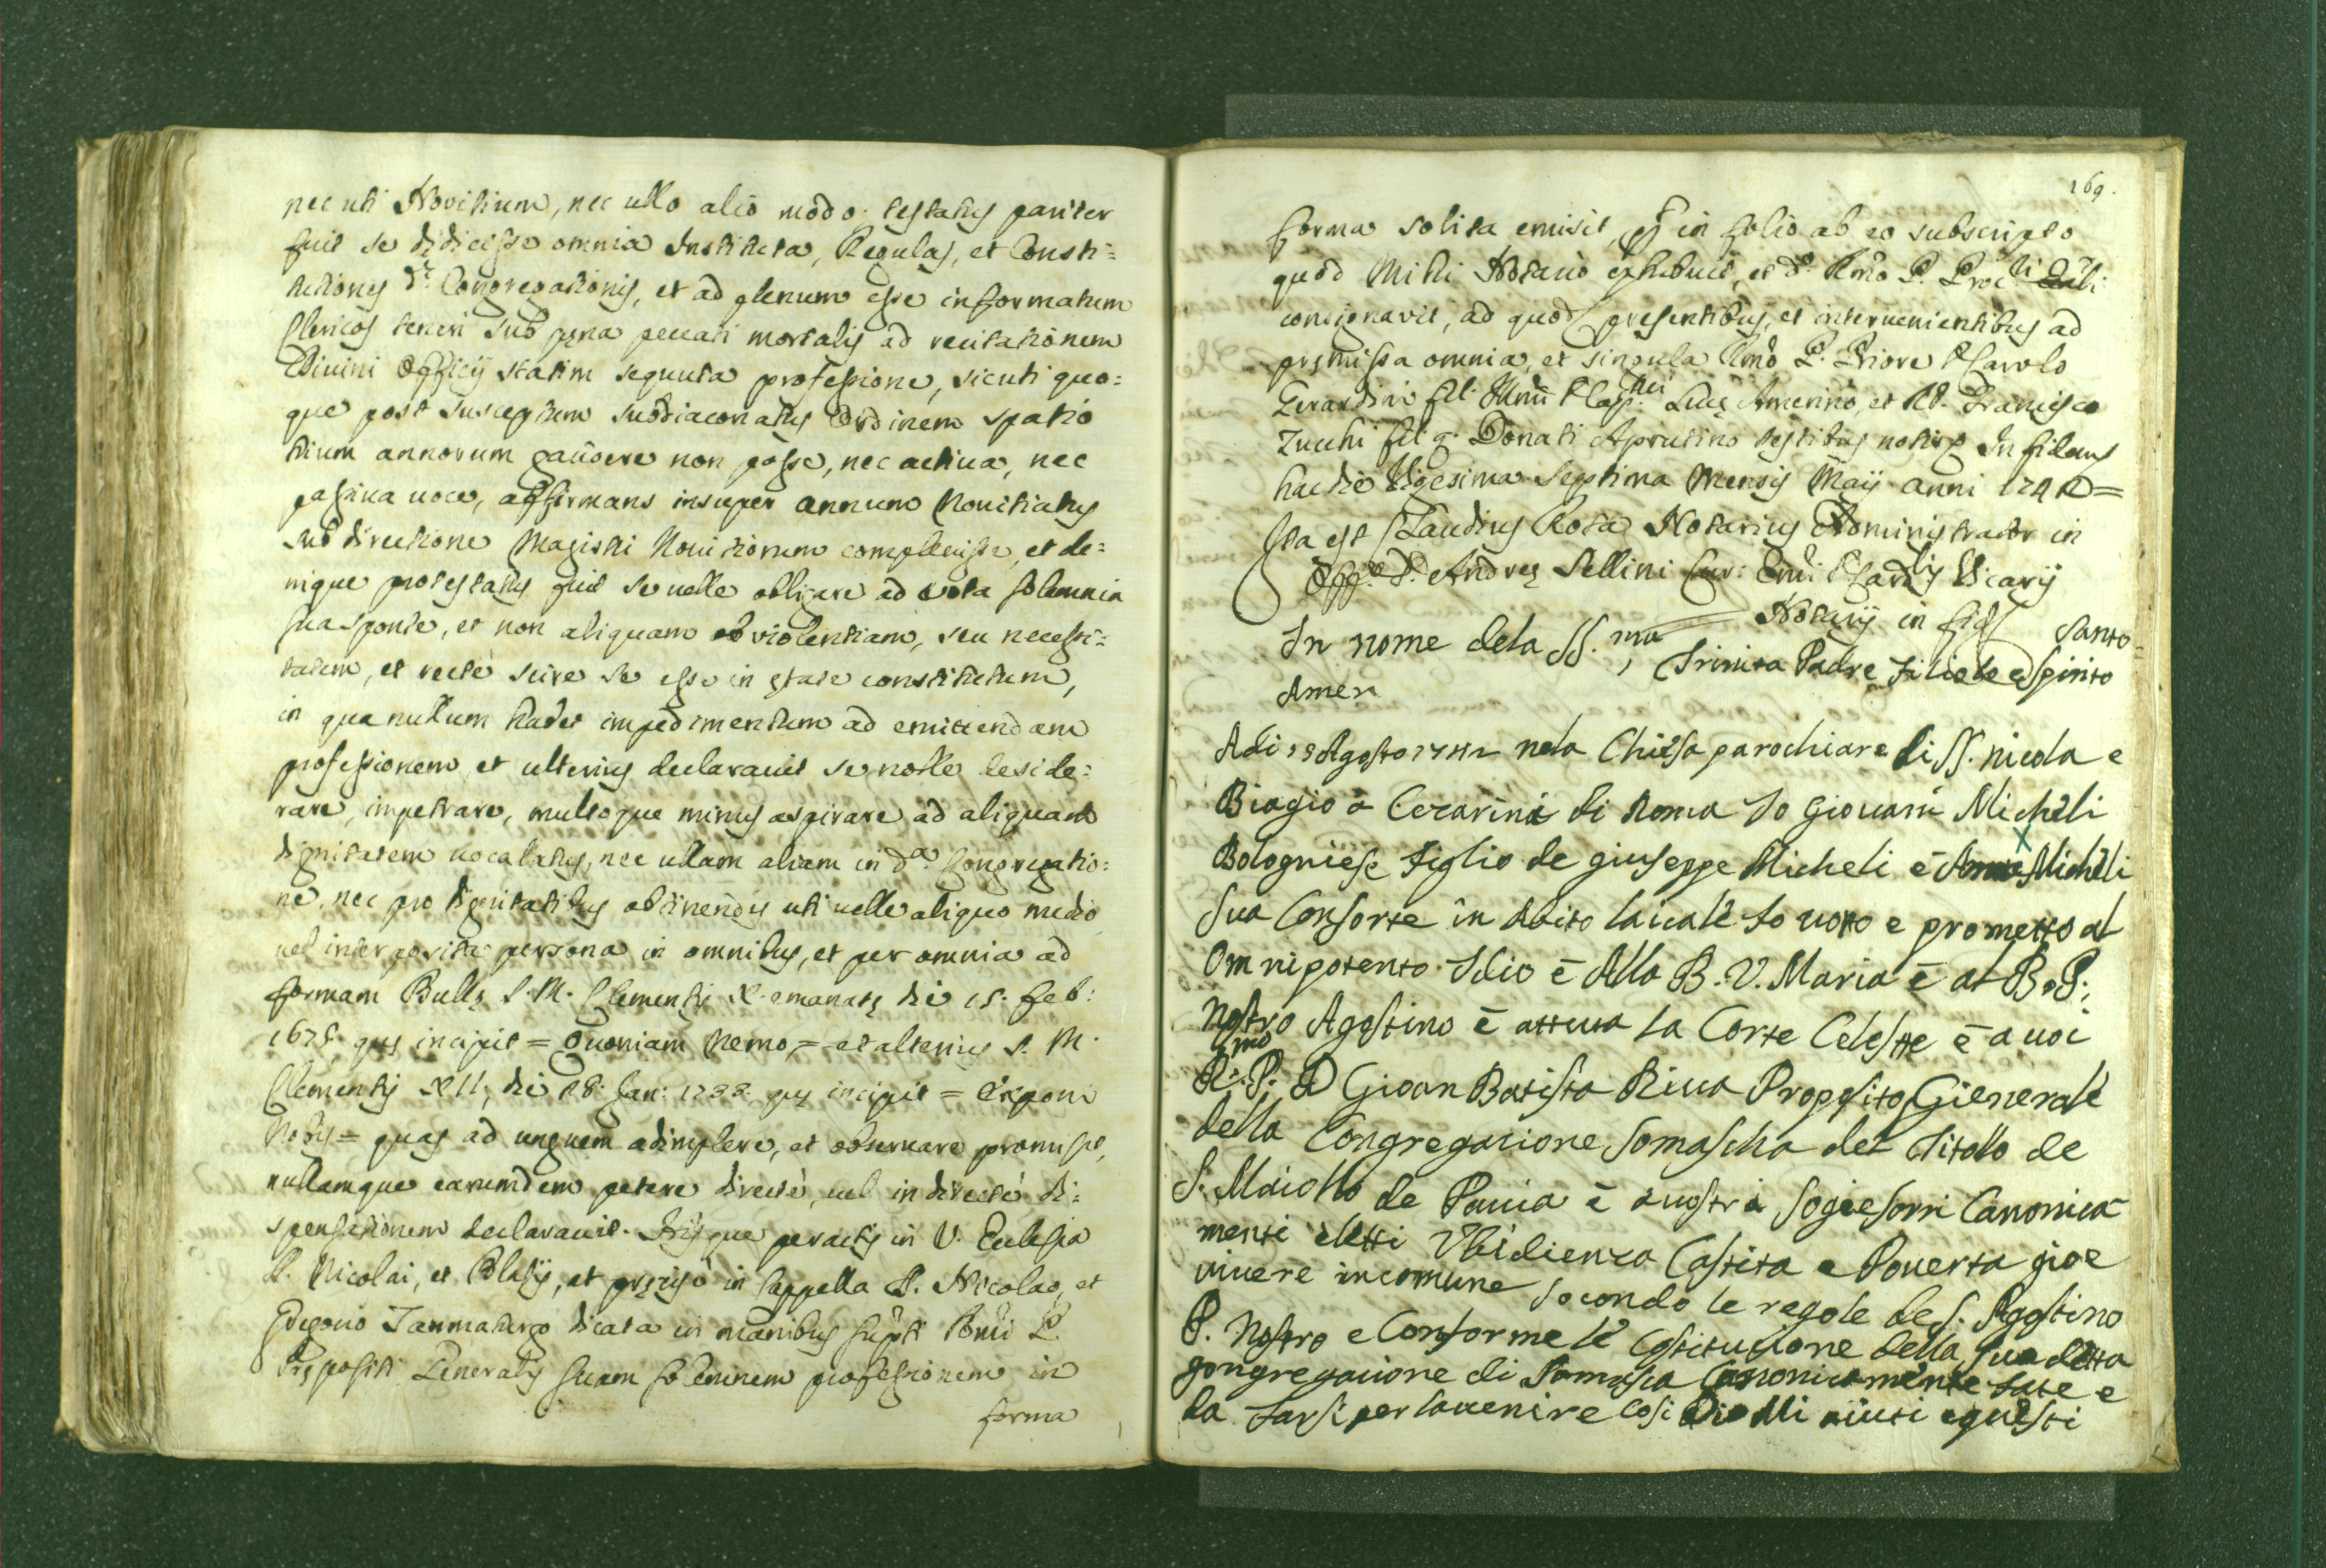 nec uti Novitium, nec ullo alio modo. testatus pariter
fuit se didicisse omnia Instituta, Regulas, et Consti=
tutiones d.ę Congregationis, et ad plenum esse informatum
Clericos teneri sub pęna peccati mortalis ad recitationem
Divini Officij statim sequuta professione, sicuti quo=
que post susceptum subdiaconatus Ordinem spatio
trium annorum gaudere non posse, nec activa, nec
passiva voce, affirmans insuper annum Novitiatus
sub directione Magistri Novitiorum complevisse, et de=
nique protestatus fuit se velle obligare ad vota solemnia
sua sponte, et non aliquam ob violentiam, seu necessi=
tatem, et recte scire se esse in ętate constitutum,
in qua nullum habet impedimentum ad emittendam
professionem et ulterius declaravit se nolle deside=
rare, impetrare, multoque minus aspirare ad aliquam
dignitatem vocalatus, nec ullam aliam in d.a Congregatio=
ne, nec pro dignitatibus obtinendis uti velle aliquo medio
vel interposita persona in omnibus, et per omnia ad
formam Bullę S. M. Clementis X. emanatę die 15. feb:
1675. quę incipit = Quoniam Nemo = et alterius S. M.
Clementis XII, die 28. Jan: 1733. quę incipit = Exponi
Nobis = quas ad unguem adimplere, et observare promisit,
nullamque earumdem petere directè, vel indirectè di=
spensationem declaravit. Hisque peractis in V. Ecclesia
S. Nicolai, et Blasij, et pręcisè in Cappella S. Nicolao, et
Gregorio Taumaturgo dicata in manibus supti Rmi P.
Prępositi Generalis suam solemnem professionem in
forma
169.
forma solita emisit, in folio ab eo subscripto
quod Mihi Notario exhibuit, et d. Rmo P. Proc.
consignavit, ad quod presentibus, et intervenientibus ad
pręmissa omnia, et singula Rmo P. Priore Carolo
Gerardini fil. Lucę Amerino, et Francisco
Zucchi fil. q. Donati Aprutino testibus notis In fidem
hac die Vigesima Septima Mensis Maij anni =
Ita est Claudius Rota Notarius Administrator in
Off.o D. Andreę Sellini Cur: Emi Cardlis Vicarij
Notarij in fidem
In nome dela SS.ma Trinita Padre Filiolo e Spirito Santo=
Amen
Adi Agosto nela Chiesa parochiare di SS. nicola e
Biagio a Cezarini di Roma Io Giovani Micheli
Bologniese Figlio de Giuseppe Micheli è Micheli
sua Consorte in Abito laicale fo voto e prometto al
Omnipotento Idio è Alla B. V. Maria è al B. P.
Nostro Agostino è attuta la Corte Celeste è a voi
R.mo P. D Gioan Batista Riva Proposito Gienerale
della Congregacione Somascha del Titollo de
S. Maiollo de Pavia è avostri sogiesorri Canonica
menti eletti Vbidienza Castita e Poverta gioe
vivere incomune socondo le regole de S. Agostino
P. Nostro e Conforme le Costitucione della sua detta
gongregacione di Somasca Canonicamente fate e
da farsi per lavenire Cosi Dio Mi aiuti equesti